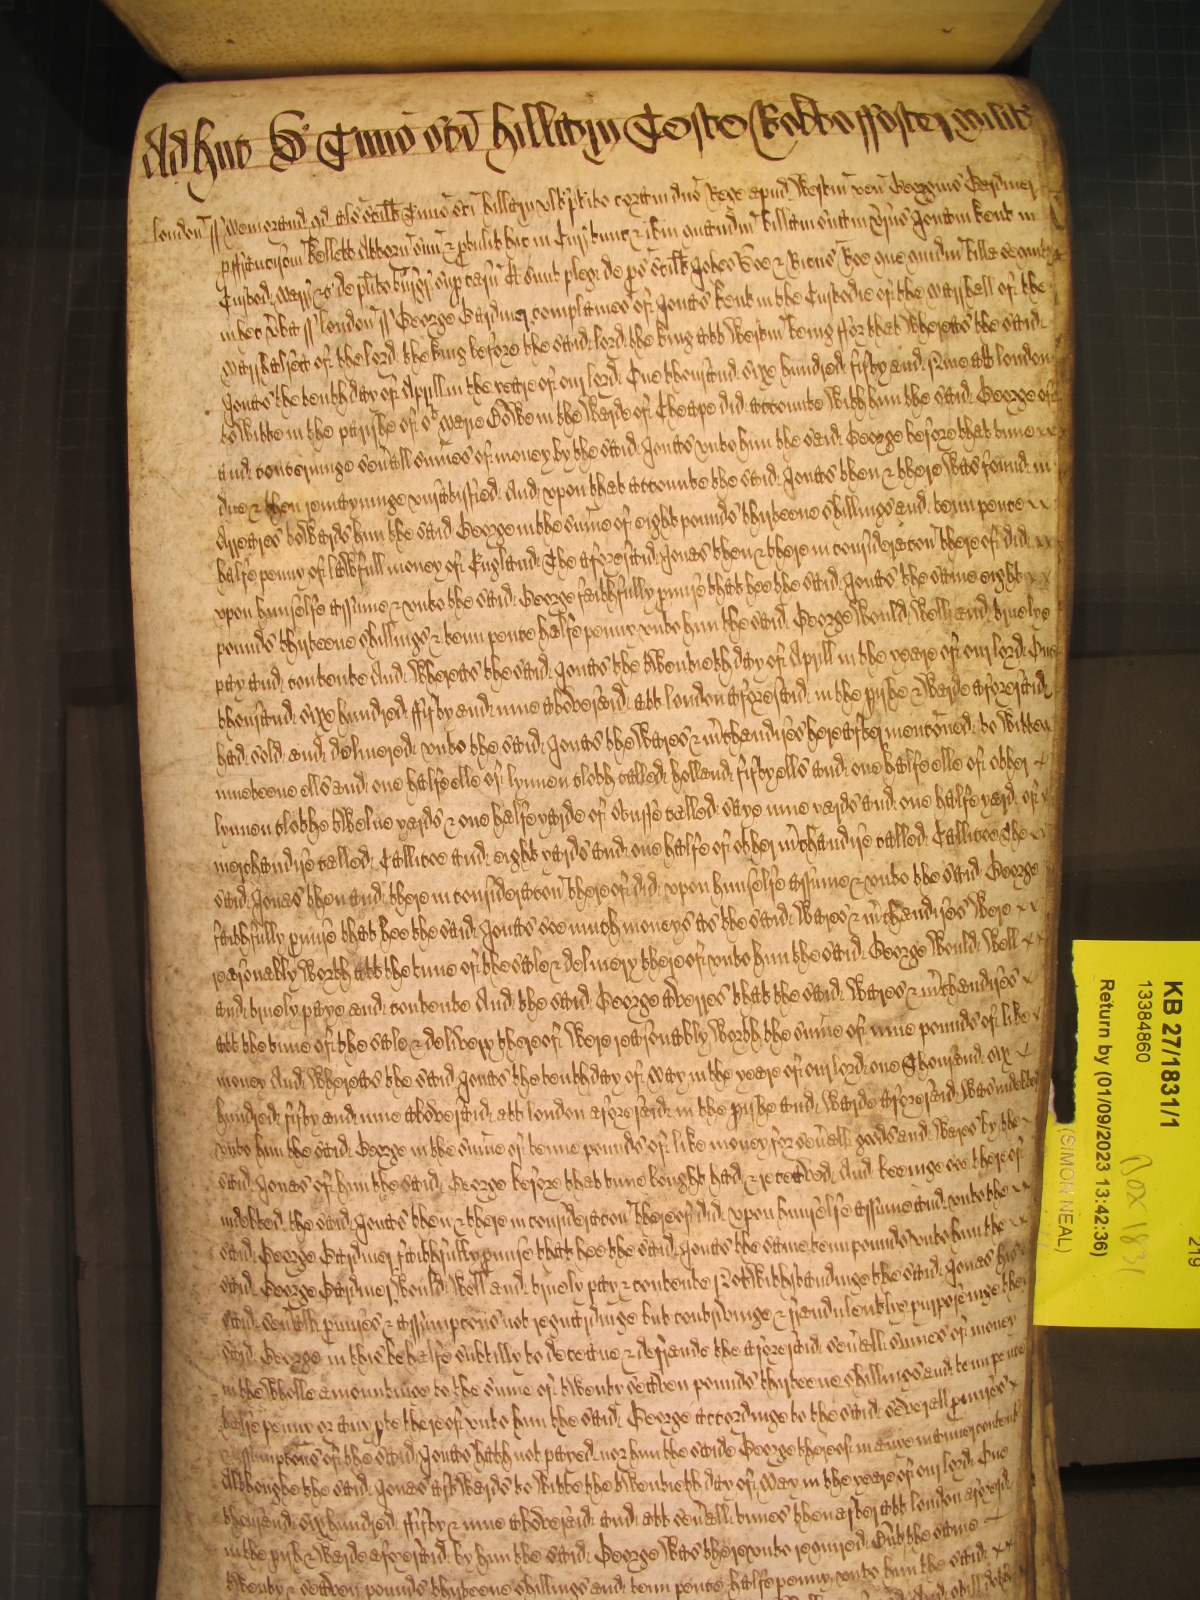 Ad huc De Termino sci Hillarij Teste Robto ffoster milit
London ss Memorand qd als scilt Tmio sci Hillarij ult ptito coram dno Rege apud Westm ven Georgius Gardiner
p ffranciscum Kellett Attorn suu & ptulit hic in Cur tunc & ibm quandam billam suam vsus Jonam Kent in
Custod Marr &c de plito tnsgr sup casu Et sunt pleg de ps scilt Johes Doe & Ricus Roe que quidm billa sequit
in hec vba ss London ss George Gardiner complaines of Jonas Kent in the Custodie of the Marshall of the
Marshalsea of the lord the King before the said lord the King att Westm being ffor that Whereas the said
Jonas the tenth day of Aprill in the yeare of our lord One thousand sixe hundred fifty and nine att London
to witte in the parishe of St Marie Bowe in the Warde of Cheape did accounte with him the said George of
and concerninge sevall summes of money by the said Jonas unto him the said George before that time
due & then remayninge unsatisfied And upon that accounte the said Jonas then & there was found in
Arreares towards him the said George in the summe of eight pounds thirteene shillings and tenn pence
halfe penny of lawfull money of England The aforesaid Jonas then & there in consideracon thereof did
upon himselfe assume & unto the said George faithfully pmise that hee the said Jonas the same eight
pounds thirteene shillings & tenn pence halfe penny unto him the said George would well and truelye
pay and contente And Whereas the said Jonas the twentieth day of Aprill in the yeare of our lord One
thousand sixe hundred ffifty and nine abovesaid att London aforesaid in the pishe & Warde aforesaid
had sold and delivered unto the said Jonas the Wares & mchandizes hereafter mencioned to witte
nineteene ells and one halfe elle of lynnen cloth called holland fifty ells and one halfe elle of other
lynnen clothe twelve yards & one halfe yarde of stuffe called saye nine yards and one halfe yard of
merchandize called Callicoe and eight yards and one halfe of other mchandize called Callicoe The
said Jonas then and there in consideracon thereof did upon himselfe assume & unto the said George
faithfully pmise that hee the said Jonas soe much moneys as the said Wares & mchandizes were
reasonably worth att the time of the sale & delivery thereof unto him the said George would well
and truely paye and contente And the said George averres that the said Wares & mchandizes
att the time of the sale & delivery thereof were reasonably worth the summe of nine pounds of like
money And Whereas the said Jonas the tenth day of May in the yeare of our lord one Thousand six
hundred fifty and nine abovesaid att London aforesaid in the pishe and Warde aforesaid was indebted
unto him the said George in the summe of tenne pounds of like money for sevall goods and Wares by the
said Jonas of him the said George before that time bought had & received And beeinge soe thereof
indebted the said Jonas then & there in consideracon thereof did upon himselfe assume and unto the
said George Gardiner faithfully pmise that hee the said Jonas the same tenn pounds unto him the
said George Gardiner would well and truely pay & contente Notwithstandinge the said Jonas his
said sevall pmises & assumpcons not regardinge but contrivinge & fraudulentlye purposeinge the
said George in this behalfe subtilly to deceave & defraude the aforesaid sevall summes of money
in the whole amountinge to the summe of twenty seaven pounds thirteene shillings and tenn pence
halfe penny or any pte thereof unto him the said George accordinge to the said severall pmises
& assumpcons of the said Jonas hath not payed nor him the saide George thereof in anie manner content
Althoughe the said Jonas aftwards to witte the twentieth day of May in the yeare of our lord One
thousand six hundred ffifty & nine abovesaid and att sevall times then after att London aforesd
in the pish & Warde aforesaid by him the said George was thereunto required But the same
twenty & seaven pounds thirteene shillings and tenn pence halfe penny unto him the said
KB 27/1831/1
13384860
Return by (01/09/2023 13:42:36)
(SIMON NEAL)
Box 1831
219